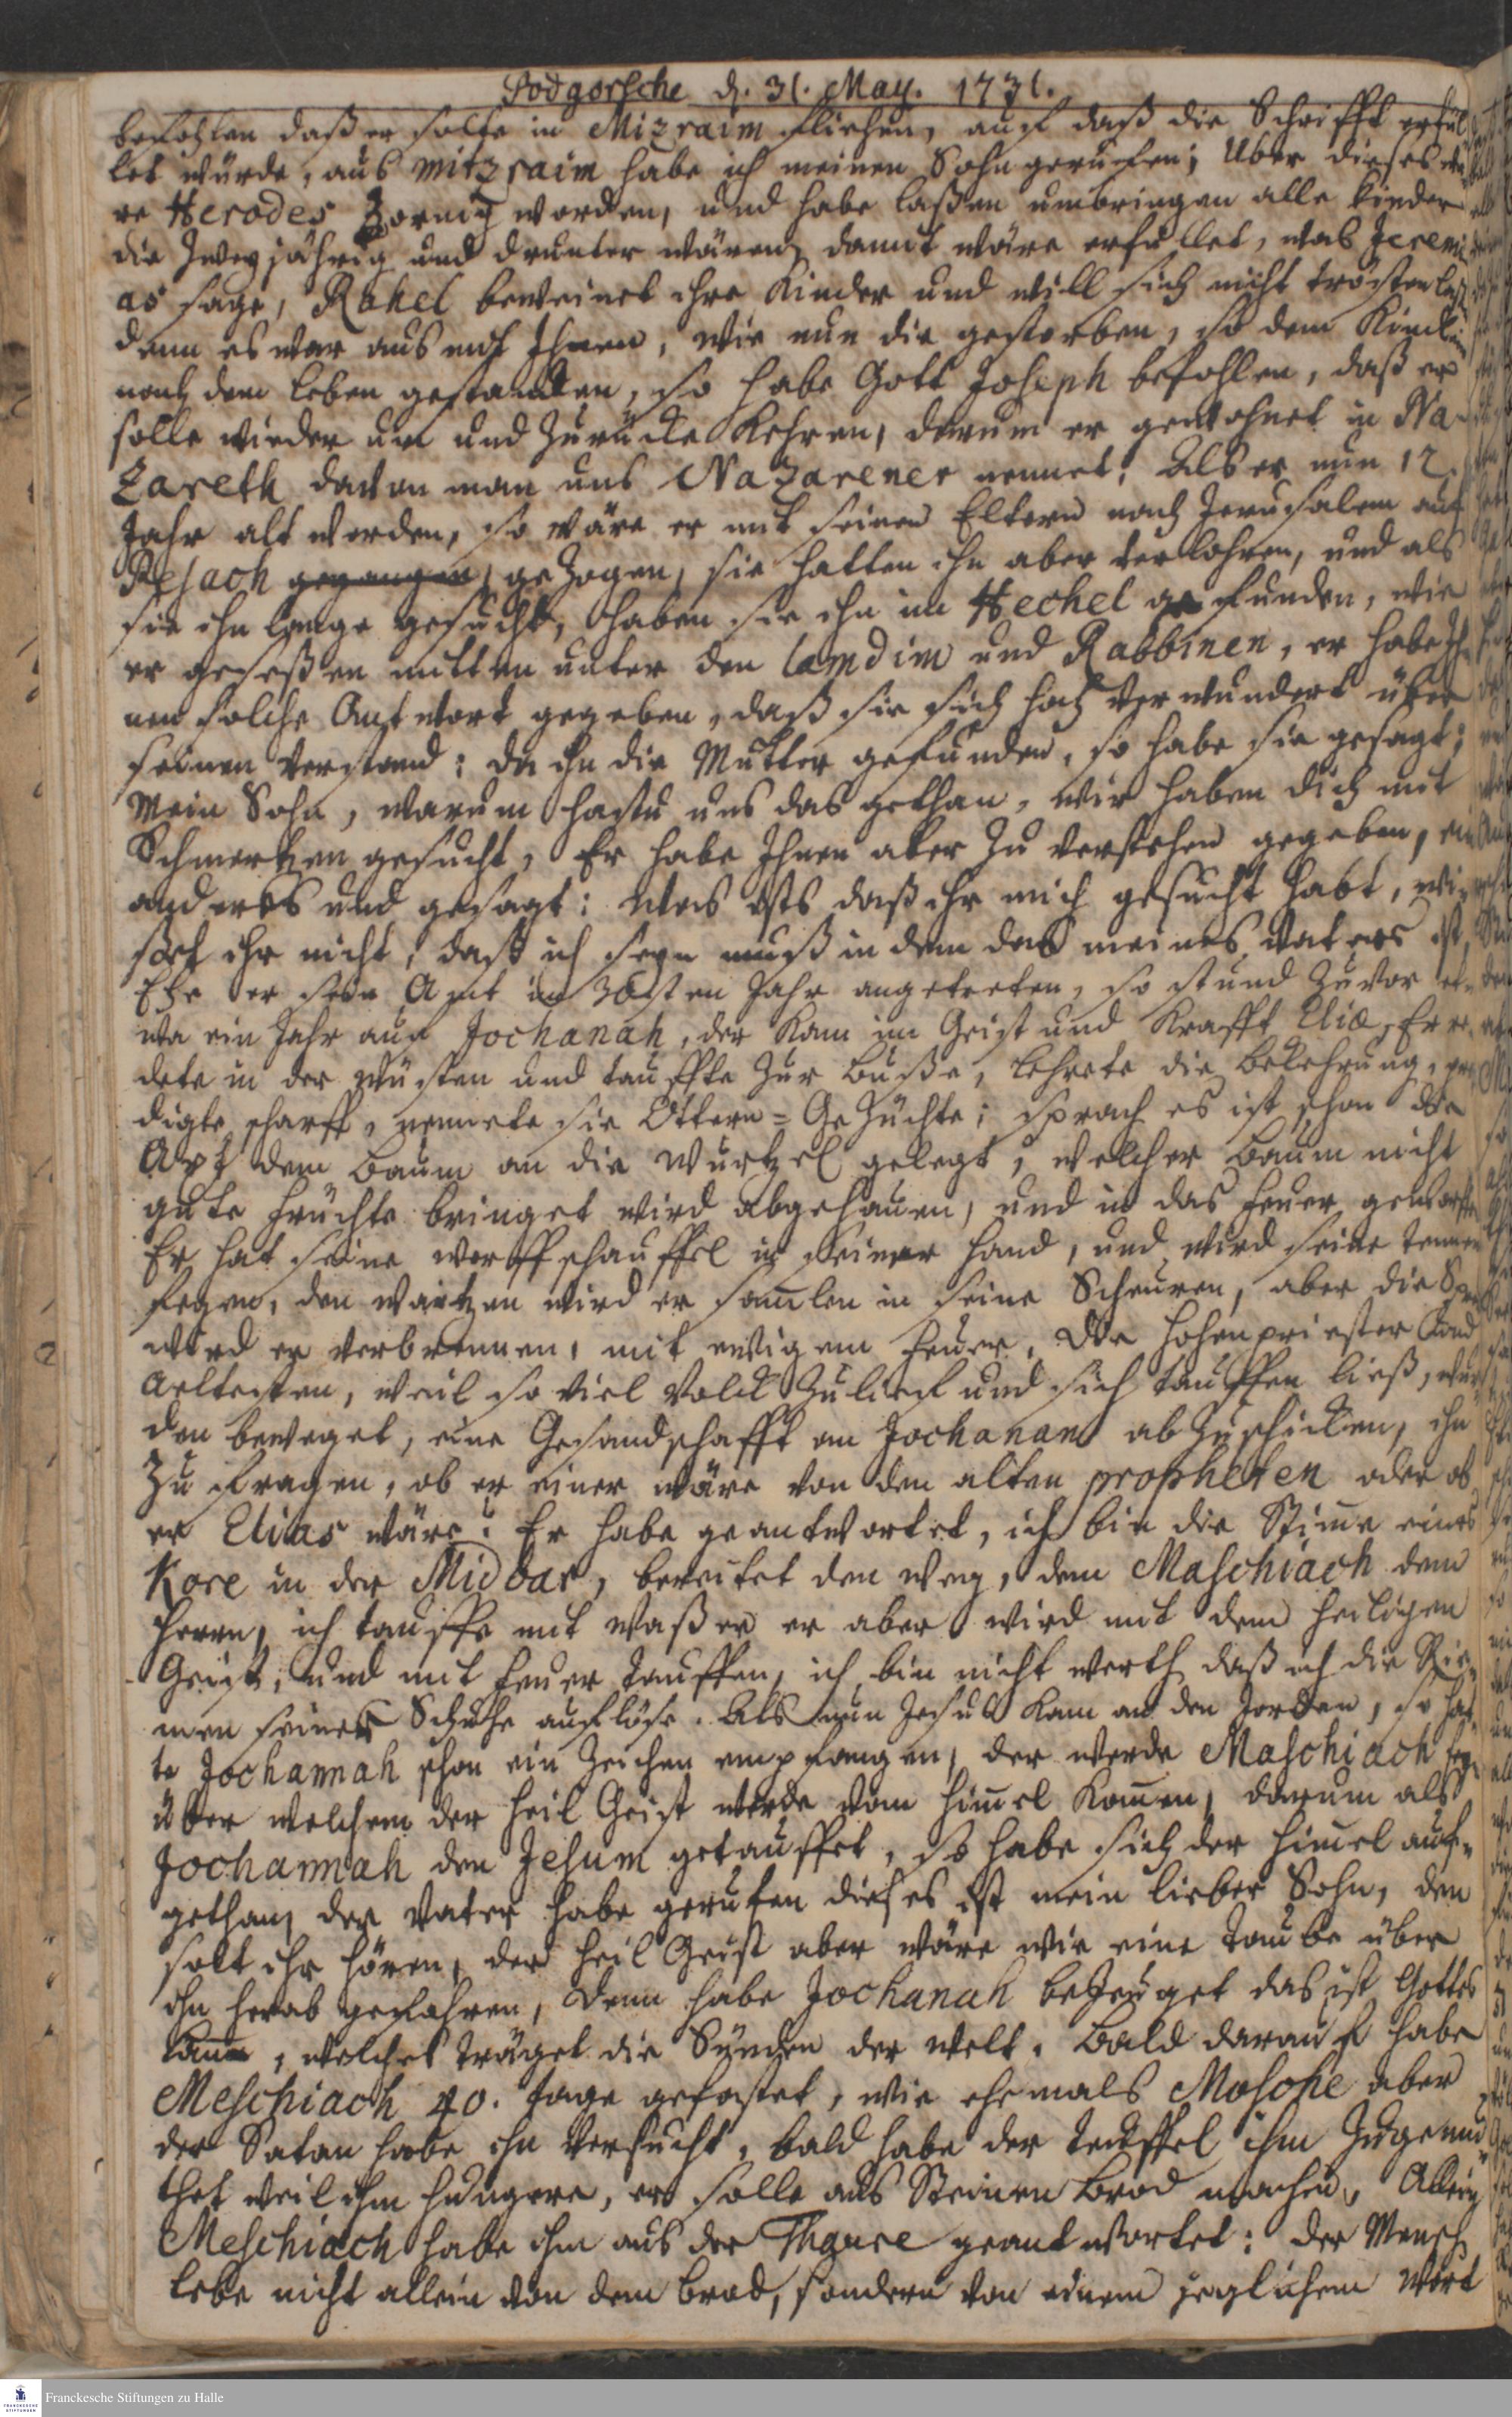 Podgorsche d. 31. May. 1731.
befohlen daß er solte in Mizraim fliehen, auf daß die Schrifft erfül
let würde, aus mitzraim habe ich meinen Sohn geruffen; Über dieses wä
re Herodes Zornig worden, und habe laßen umbringen alle Kinder
die Zweyjährig und drunter wären, damit wäre erfüllet, was Jeremi
as sage, Rahel beweinet ihre Kinder und will sich nicht trösten laß
denn es war aus mit Ihnen, Wie nun die gestorben, so dem Kindlein
nach dem Leben gestanden, so habe Gott Joseph befohlen, daß er
solle wieder um und Zurücke Kehren, darum er gewohnet in Na-
zareth davon man uns Nazarener nennet; Als er nun 12.
Jahr alt worden, so wäre er mit seinen Eltern nach Jerusalem auf
Pesach gegangen, geZogen, sie hatten ihn aber verlohren, und als
sie ihn lange gesucht, haben sie ihn im Hechel gefunden, wie
er geseßen mitten unter den lamdim und Rabbinen, er habe Ih
nen solche Antwort gegeben, daß sie sich hoch verwundert über
seinen Verstand: da ihn die Mutter gefunden, so habe sie gesagt;
Mein Sohn, warum hastu uns das gethan, wir haben dich mit
Schmertzen gesucht, Er habe Ihnen aber Zu verstehen gegeben, ein
anderes und gesagt: Was ists daß ihr mich gesucht habt, wi
ßet ihr nicht, daß ich seyn muß in dem das meines Vaters ist,
Ehe er sein Amt im 30sten Jahr angetreten, so stund Zuvor et-
wa ein Jahr auf Jochanah, der Kam im Geist und Krafft Eliae, Er re-
dete in der Wüsten und tauffte Zur Buße, lehrete die Bekehrung, pre
digte scharff, nennete sie Ottern-GeZüchte; sprach es ist schon die
Axt dem Baum an die Wurtzel gelegt, welcher Baum nicht
gute Früchte bringet wird abgehauen, und in das Feuer geworffen
Er hat seine worffschauffel in seiner Hand, und wird seine Tennen
fegen, den Waitzen wird er samlen in seine Scheuren, aber die Spreu
wird er verbrennen, mit ewigem Feuer. Die Hohenpriester und
Aeltesten, weil so viel Volck Zulieff und sich tauffen ließ, wur
den beweget, eine Gesandschafft an Jochanan abZuschicken, ihn
Zu fragen, ob er einer wäre von den alten propheten oder ob
er Elias wäre: Er habe geantwortet, ich bin die Stime eines
Kore in der Midbar, bereitet den Weg, dem Maschiach dem
Herrn, ich tauffe mit Waßer er aber wird mit dem Heiligen
Geist, und mit Feuer Tauffen, ich bin nicht werth daß ich die Rie-
men seiner Schuhe auflöse. Als nun Jesus Kam an den Jordan, so hat-
te Jochannah schon ein Zeichen empfangen, der werde Maschiach sey
über welchem der Heil Geist werde vom Himel Komen, darum als
Jochannah den Jesum getauffet, so habe sich der Himel auf-
gethan, der Vater habe geruffen dieses ist mein lieber Sohn, den
solt ihr hören, der Heil Geist aber wäre wie eine Taube über
ihn herab gefahren, Denn habe Jochanah beZeuget das ist Gottes
Lamm, welches träget die Sünden der Welt. Bald darauf habe
Meschiach 40. Tage gefastet, wie ehemals Mosche aber
der Satan habe ihn versucht, bald habe der Teuffel ihm Zugemu
thet weil ihm hungere, er solle aus Steinen Brod machen, Allein
Meschiach habe ihm aus der Thaure geantwortet: der Mensch
lebe nicht allein von dem Brod, sondern von einem jeglichem Wort
Franckesche Stiftungen zu Halle